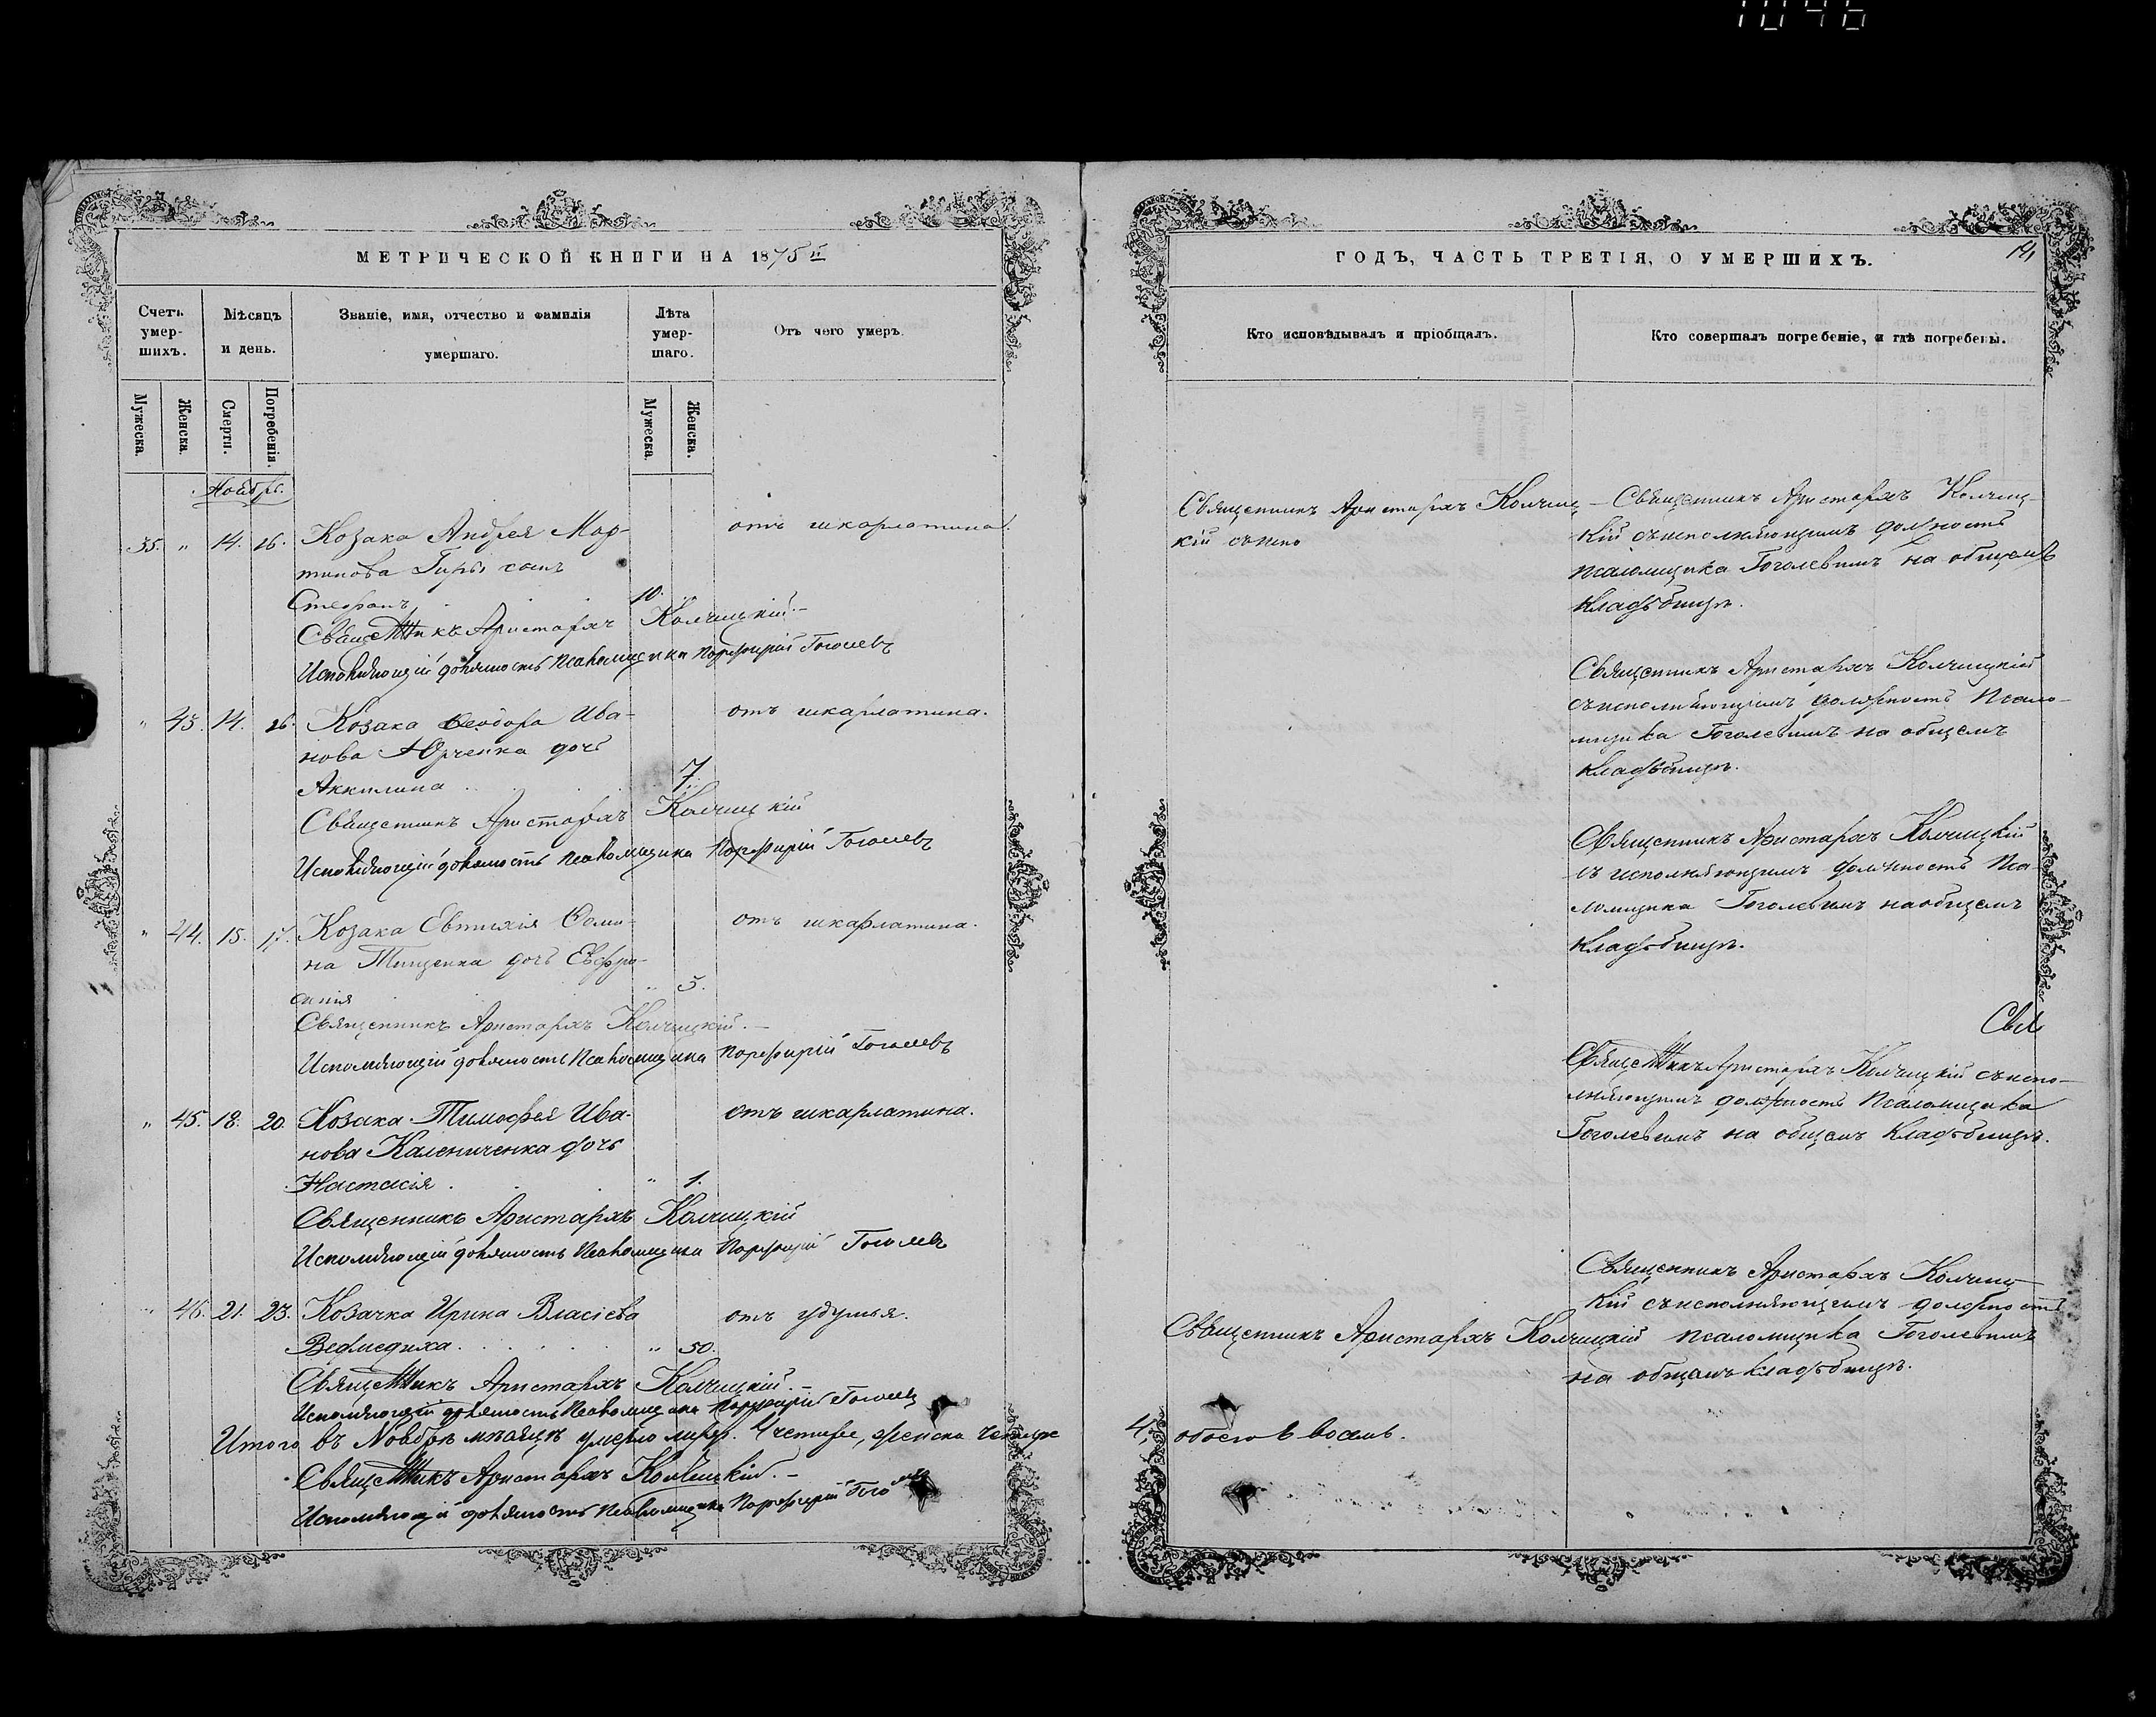 1046
МЕТРИЧЕСКОЙ КНИГИ НА 1875й
Счетъ умер- шихъ.
Мѣсяцъ и день.
Званіе, имя, отчество и фамилія умершаго.
Лѣта умер- шаго.
Отъ чего умеръ.
Мужеска.
Женска.
Смерти.
Погребенія.
Мужеска.
Женска.
Ноябрь.
35. „ 14. 16. Козака Андрея Мар- отъ шкарлатина.
тинова Гиры сынъ
Стефанъ 10.
Священникъ Аристархъ Колчицкій. –
Исполняющій должность Псаломщика Порфирій Гоголевъ
„ 43. 14. 16. Козака Ѳеодора Ива- отъ шкарлатина.
нова Юрченка дочь
Акилина 7.
Священникъ Аристархъ Колчицкій
Исполняющій должность Псаломщика Порфирій Гоголевъ
„ 44. 15. 17. Козака Евтихія Ѳоми- отъ шкарлатина.
на Тищенка дочь Евфро-
синія „ 5.
Священникъ Аристархъ Колчицкій. –
Исполняющій должность Псаломщика Порфирій Гоголевъ
„ 45. 18. 20. Козака Тимофея Ива- отъ шкарлатина.
нова Калениченка дочь
Настасія „ 1.
Священникъ Аристархъ Колчицкій
Исполняющій должность Псаломщика Порфирій Гоголевъ
„ 46. 21. 23. Козачка Ирина Власіева отъ удушья.
Ведмедиха „ 50.
Священникъ Аристархъ Колчицкій. –
Исполняющій должность Псаломщика Порфирій Гоголевъ
Итого въ Ноябрѣ мѣсяцѣ умерло муж. Четыре, женска четыре
Священникъ Аристархъ Колчицкій. –
Исполняющій должность Псаломщика Порфирій
ГОДЪ, ЧАСТЬ ТРЕТІЯ, О УМЕРШИХЪ.
Кто исповѣдывалъ и пріобщалъ.
Кто совершалъ погребеніе, и гдѣ погребены.
Священникъ Аристархъ Колчиц
кій съ испо
Священникъ Аристархъ Колчиц-
кій съ исполняющимъ должность
псаломщика Гоголевымъ на общемъ
кладбищѣ.
Священникъ Аристархъ Колчицкій
съ исполняющимъ должность Псало-
мщика Гоголевымъ на общемъ
кладбищѣ.
Священникъ Аристархъ Колчицкій
съ исполняющимъ должность Пса-
ломщика Гоголевымъ на общемъ
кладбищѣ.
Свя
Священникъ Аристархъ Колчицкій съ испо-
лняющимъ должность Псаломщика
Гоголевымъ на общемъ кладбищѣ.
Священникъ Аристархъ Колчицкій
Священникъ Аристархъ Колчиц-
кій съ исполняющимъ должность
псаломщика Гоголевымъ
на общемъ кладбищѣ.
4, обоего восемь.